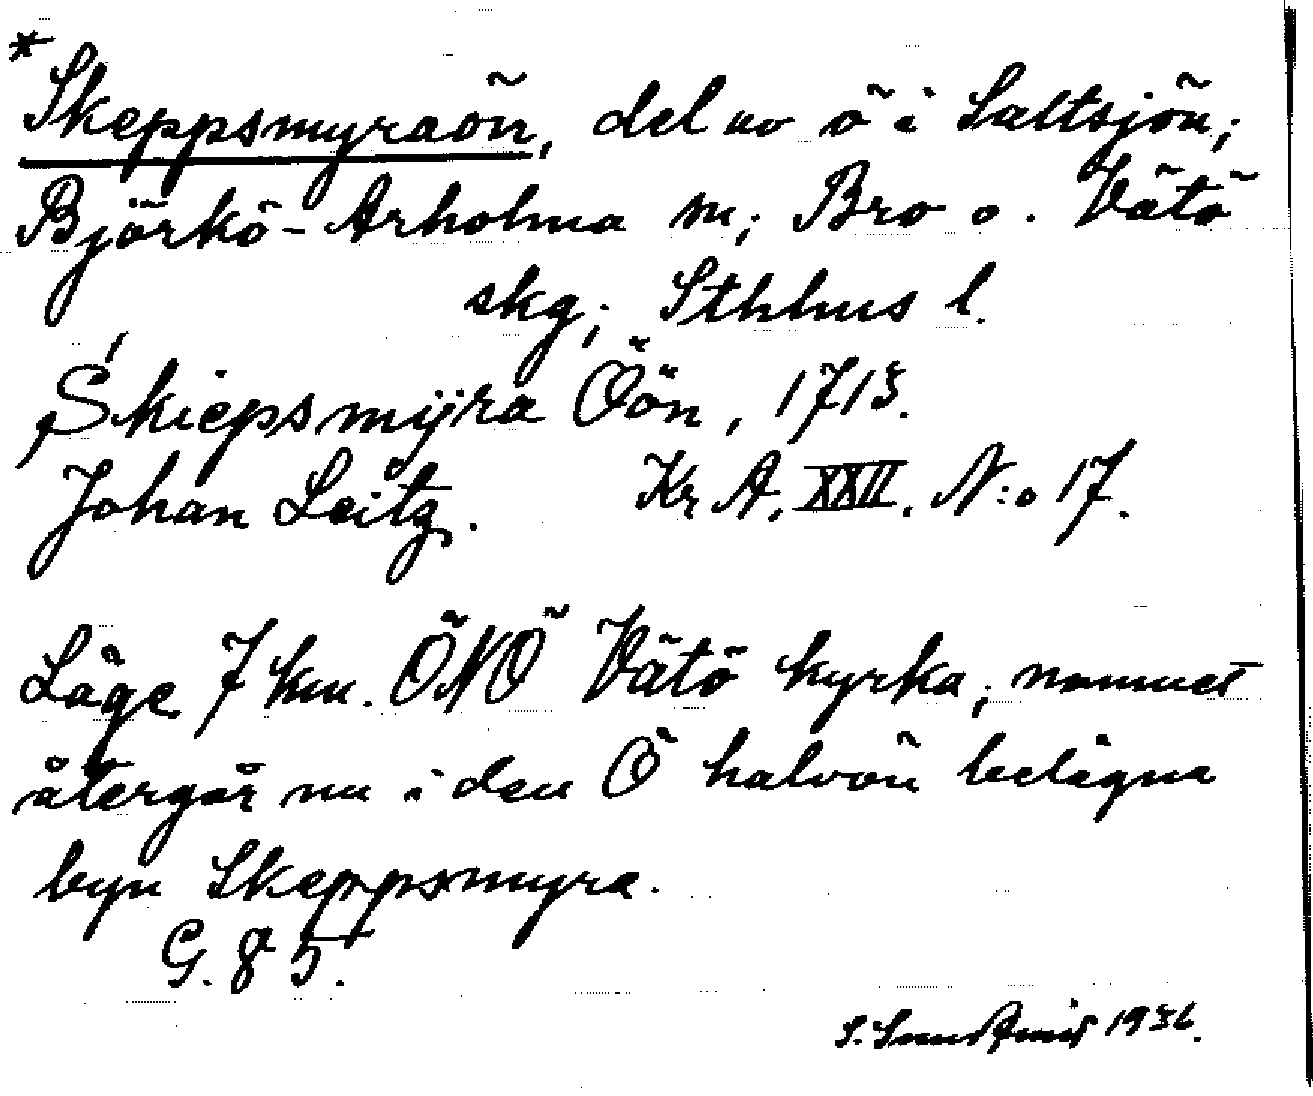 *
Skeppsmyraön, del av ö i Saltsjön;
Björkö-Arholma sn; Bro o. Vätö
skg; Sthlms l.
Skiepsmÿra Öön, 1713.
Johan Leitz. Kr A. XXII. N:o 17.
Läge 7 km. ÖNÖ Vätö kyrka; namnet
återgår nu i den Ö halvön belägna
byn Skeppsmyra.
G. 85.
S. 1936.